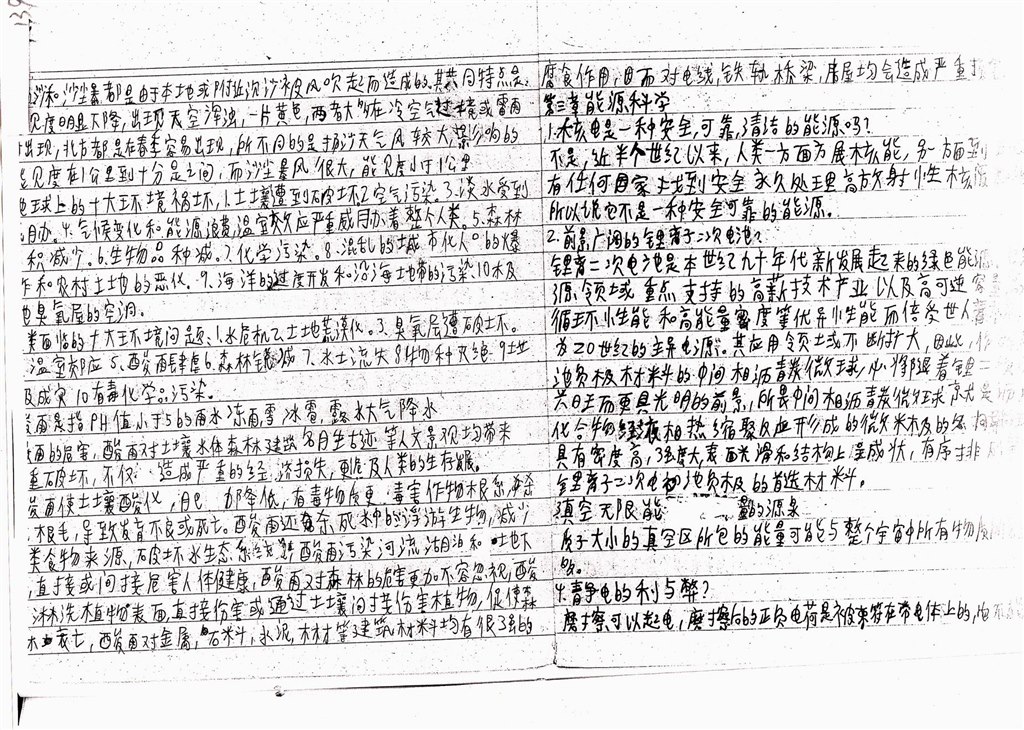 139
沙和沙尘暴都是由于本地或附近次沙被风吹起而造成的.其共同特点是:
见度明显下降,出现天空浑浊,一片黄色,两者大多在冷空气过境或雷雨
出现,北方都是在春季容易出现,所不同的是扬沙天气风较大影响的
能见度在1公里到十分足之间,而沙尘暴风很大,能见度小于1公里
地球上的十大环境祸坏,1.土壤遭到破坏2.空气污染.3.淡水受到
胁.4.气候变化和能源浪费温室效应严重威胁着整个人类.5.森林
积减少.6.生物品种减.7.化学污染.8.混乱的城市化人口的爆
炸和农村土地的恶化.9.海洋的过度开发和沿海地带的污染.10极
地臭氧层的空洞.
类面临的十大环境问题:1.水危机乙土地荒漠化.3.臭氧层遭破坏.
温室效应5.酸雨肆虐6.森林锐减7.水土流失8物种灭绝.9垃
圾成灾10有毒化学品污染.
酸雨是指PH值小于5的雨水冻雨雪冰雹,露水大气降水
雨的危害,酸雨对土壤水体森林建筑名胜古迹等人文景观均带来
重破坏,不仅造成严重的经济损失,更危及人类的生存发展.
酸雨使土壤酸化,肥力降低,有毒物质更毒害作物根系,杀
根毛,导致发育不良或死亡.酸雨还杀死水中的浮游生物,减少
类食物来源,破坏水生态系统酸雨污染河流湖泊和地下
,直接或间接危害人体健康,酸雨对森林的危害更加不容忽视,酸
淋洗植物表面直接伤害或通过土壤间接伤害植物,促使森
木衰亡,酸雨对金属,石料,水泥,木材等建筑材料均有很强的
腐蚀作用,因而对电线,铁轨,桥梁,房屋均会造成严重
第三章能源科学
1.核电是一种安全,可靠,清洁的能源吗?
不是,近半个世纪以来,人类一方面发展核能,另一方面
有任何国家找到安全永久处理高放射性核废
所以说它不是一种安全可靠的能源.
2.前景广阔的锂离子二次电池?
锂离二次电池是本世纪九十年代新发展起来的绿色能源
源领域重点支持的高新技术产业以及高可逆容量
循环性能和高能量密度等优异性能而倍受世人
为20世纪的主导电源.其应用领域不断扩大,因此,作
池负极材料的中间相沥青碳微球必将随着锂
兴旺而更具光明的前景,所谓中间相沥青碳微球就是
化合物经液相热缩聚反应形成的微米级的
具有密度高,强度大表面光滑和结构上呈成状,有序排
锂离子二次电池负极的首选材料.
真空无限能量的源泉
质子大小的真空区所包的能量可能与整个宇宙中所有物质
4.静电的利与弊?
摩擦可以起电,摩擦后的正负电荷是被束缚在带电体上的,